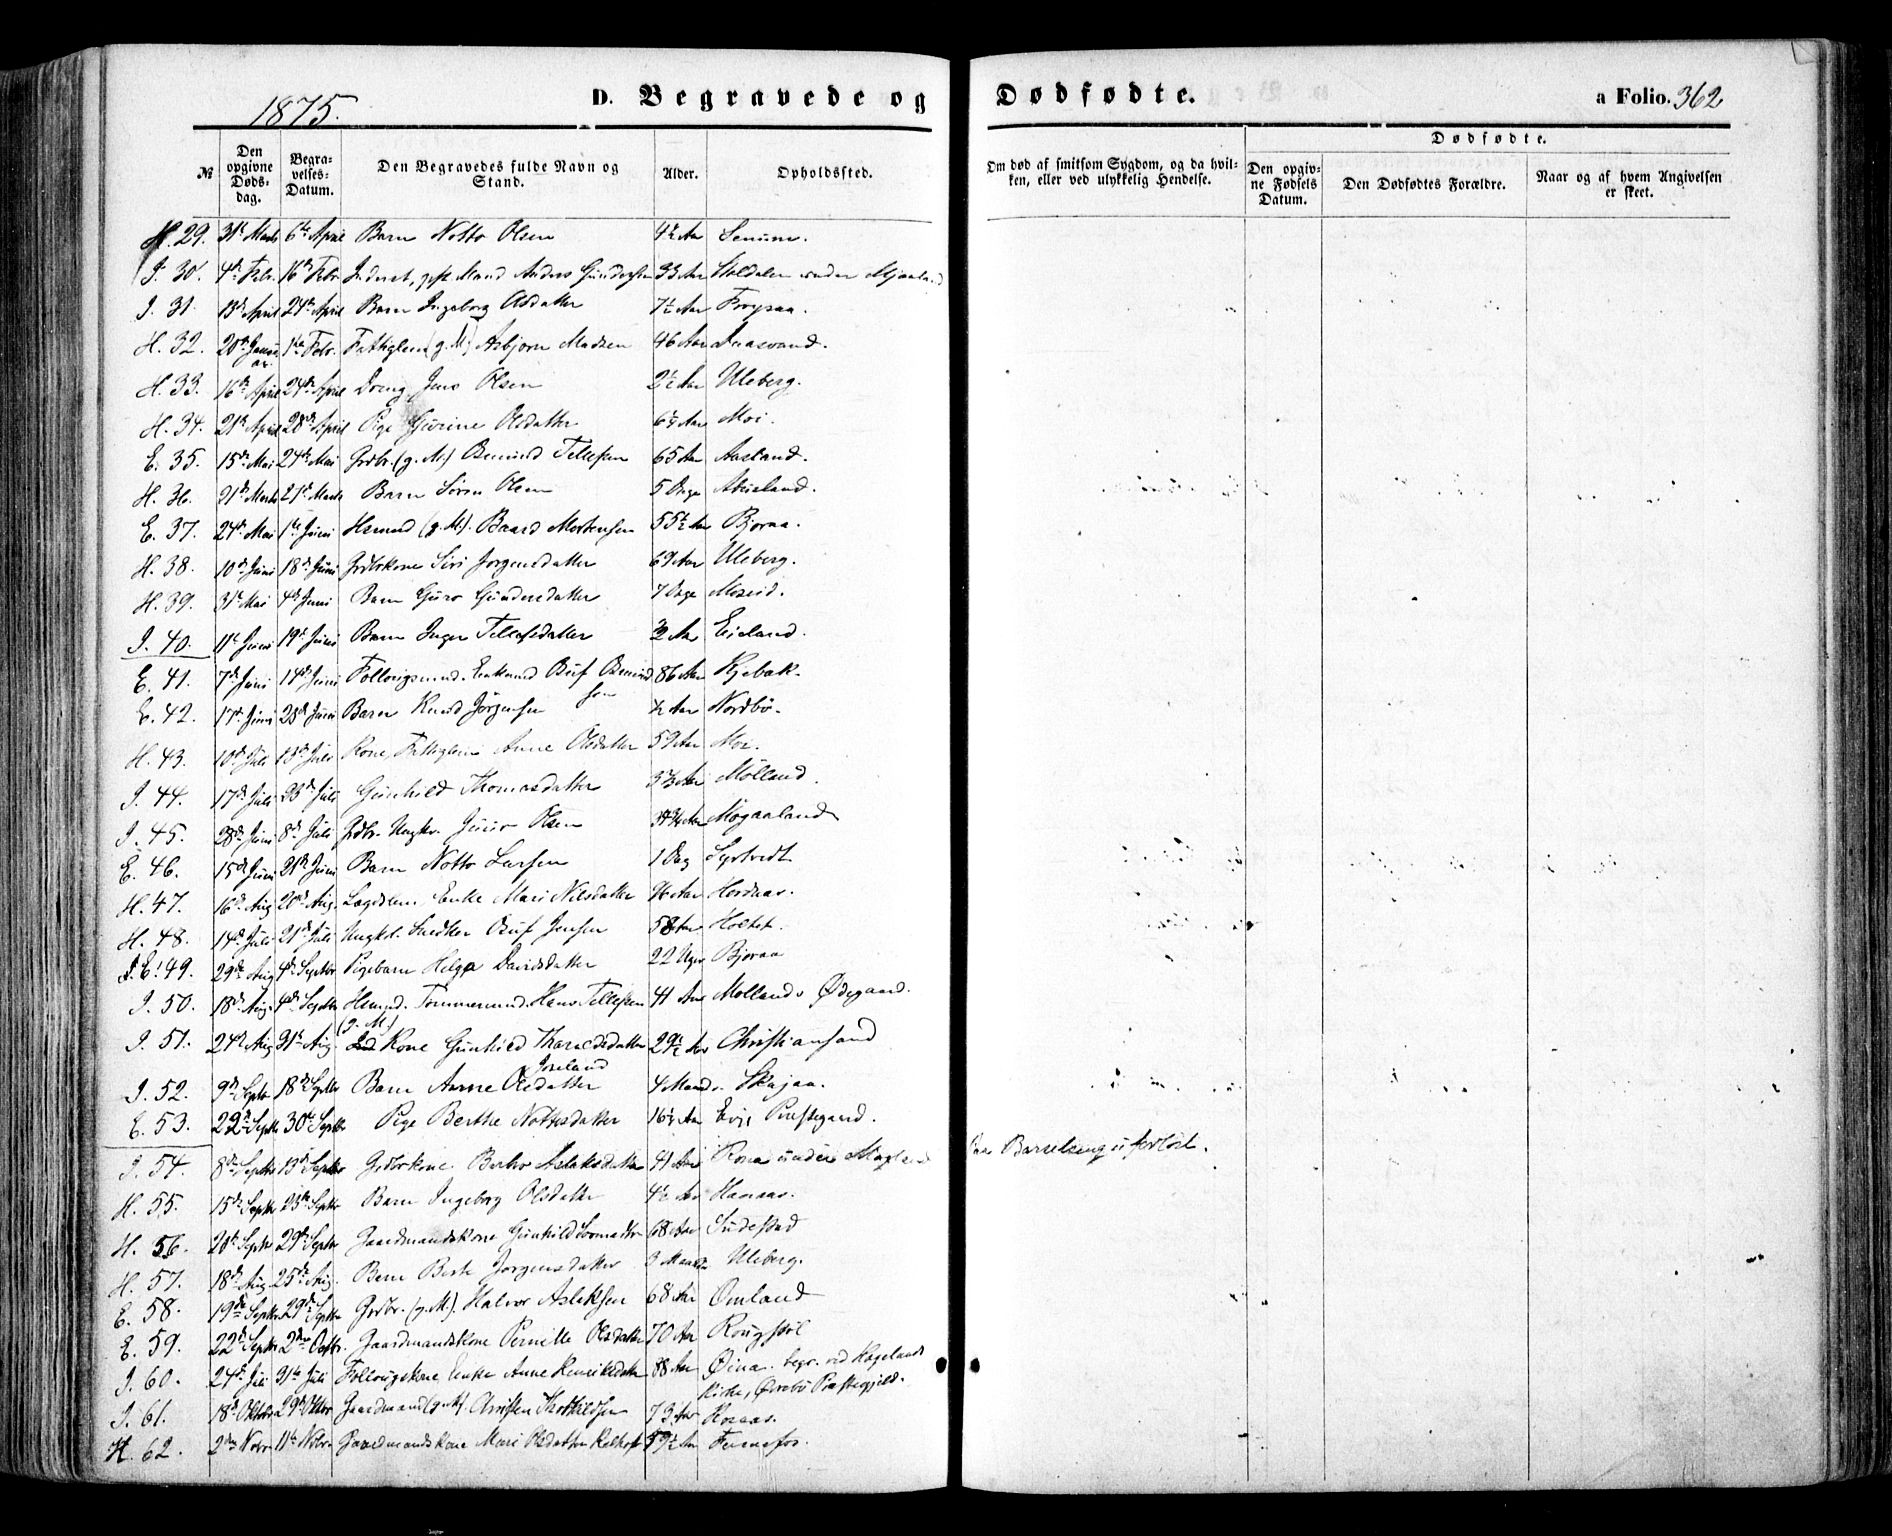 1875.
D. Begravede og Dødfødte.
a Folio. 362
№
Den opgivne Døds-dag.
Begra-velses-Datum.
Den Begravedes fulde Navn og Stand.
Alder.
Opholdssted.
Om død af smitsom Sygdom, og da hvil-ken, eller ved ulykkelig Hendelse.
Dødfødte.
Den opgiv-ne Fødsels Datum.
Den Dødfødtes Forældre.
Naar og af hvem Angivelsen er skeet.
H. 29. 31te Marts 6te April Barn Notto Olsen 4½ Aar Senum.
I. 30. 4de Febr. 16de Febr. Inderst, gift Mand Anders Gundersen 33 Aar under Mjaaland
I. 31. 13de April 24de April Barn Ingeborg Olsdatter 7½ Aar Frøysaa.
H. 32. 20de Januar 1ste Febr. Fattiglem (g. M.) Asbjørn Madsen 46 Aar
H. 33. 16de April 24de April Dreng Jens Olsen 2½ Aar Uleberg.
H. 34. 21de April 28de April Pige Olsdatter Aar Moi.
E. 35. 15de Mai 24de Mai Grdbr. (g. M.) Osmund Tellefsen 65 Aar Aasland.
H. 36. 21de Marts 27de Marts Barn Søren Olsen 5 Dage
E. 37. 24de Mai 1ste Juni Hsmnd (g. M.) Baard Mortensen 55½ Aar Bjoraa.
H. 38. 10de Juni 18de Juni Grdbrkone Siri Jørgensdatter 69 Aar Uleberg.
H. 39. 31te Mai 4de Juni Barn Guro Gundersdatter 7 Dage Moseid.
I. 40. 11te Juni 19de Juni Barn Inger Tellefsdatter Aar Eieland.
E. 41. 7de Juni 14de Juni Follougsmnd. Enkemnd Osmundsen 86 Aar Kjebæk.
E. 42. 17de Juni 28de Juni Barn Knud Jørgensen ½ Aar Nordbø.
H. 43. 10de Juli Juli Kone, Fattiglem Anne Olsdatter 59 Aar Moi.
I. 44. 17de Juli 23de Juli Gunhild Thomasdatter Aar Mølland.
I. 45. 28de Juni 8de Juli Grdbr. Ungkr. Olsen Aar
E. 46. 15de Juni 21de Juni Barn Notto Larsen 1 Dag Syrtveit
H. 47. 16de Aug. 20de Aug. Lægdslem Enke Mari Nilsdatter Aar Hordnæs.
H. 48. 14de Juli 21de Juli Ungkl. Snedker Jensen 58 Aar Holtet.
E. 49. 29de Aug 4de Septbr Pigebarn Helga Davidsdatter 22 Uger Bjoraa
I. 50. 18de Aug. 4de Septbr Hsmnd. Tømmermnd. Hans Tellefsen (g. M.) 41 Aar Møllands Ødegaard.
I. 51. 24de Aug 31te Aug. Kone Gunhild Tharaldsdatter Iveland 29½ Aar Christiansand
I. 52. 9de Septbr 18de Septbr Barn Anne Olsdatter 4 Maaneder Skajaa.
E. 53. 22de Septbr 30te Septbr Pige Berthe Nottosdatter 16½ Aar Evje Præstegaard.
I. 54. 8de Septbr 13de Septbr Grdbrkone Aslaksdatter 41 Aar under Barselseng uforløst.
H. 55. 15de Septbr 23de Septbr Barn Ingeborg Olsdatter 4½ Aar Hanaas.
H. 56. 20de Septbr 29de Septbr Gaardmandskone Gunhild 68 Aar Sudestad
H. 57. 18de Aug 25de Aug. Barn Jørgensdatter 3 Maaneder Uleberg.
E. 58. 19de Septbr 29de Septbr Grdbr. (g. M.) Halvor Aslaksen 68 Aar Omland
E. 59. 22de Septbr 2den Octbr. Gaardmandskone Pernille Olsdatter 70 Aar
I. 60. 24de Juli 31te Juli Follougskone Enke Anne Henriksdatter 88 Aar begr. ved Hægelands Kirke, Øvrebø Præstegjeld.
I. 61. 18de Oktober 29de Oktbr Gaardmand (g. M.) 73 Aar Rosaas.
H. 62. 2den Novbr 11te Novbr. Gaardmandskone Mari Olsdatter 59½ Aar Fennefos.